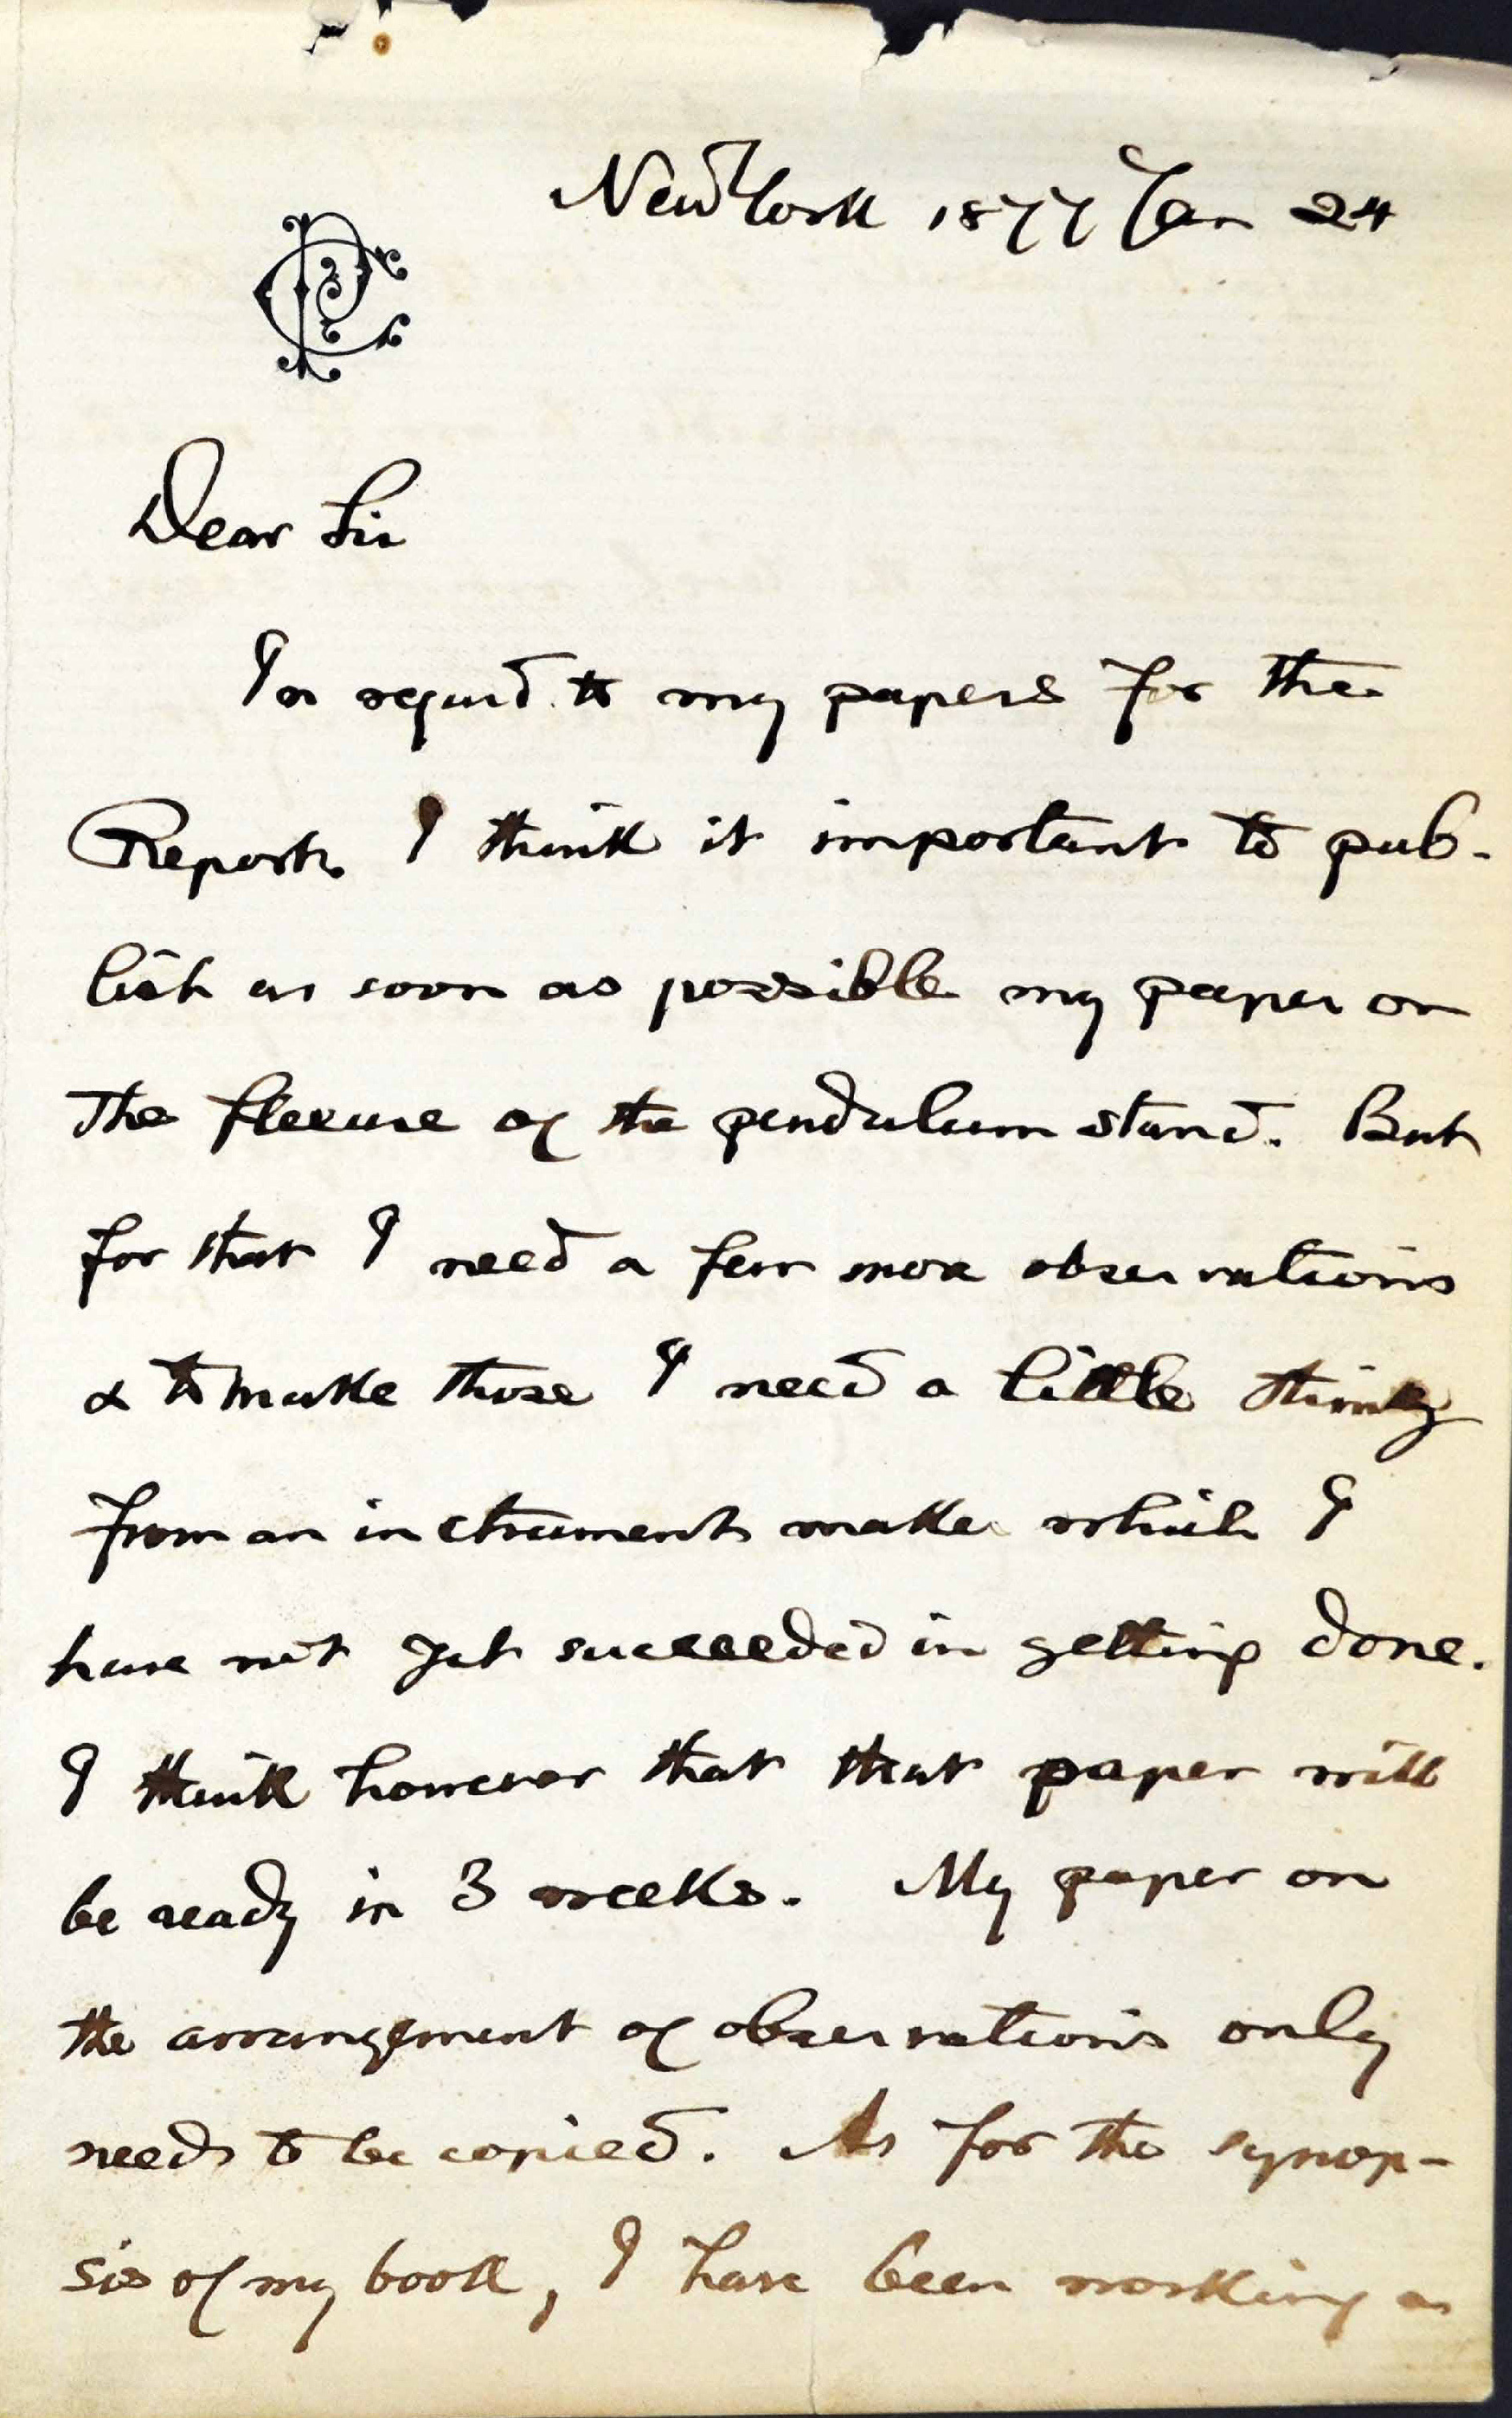 New York 1877 Jan 24
Dear Sir
In regard to my papers for the
Report. I think it important to pub-
lish as soon as possible my paper on
the flexure of the pendulum stand. But
for that I need a few more observations
& to make those I need a little thing
from an instrument maker which I
have not yet succeeded in getting done.
I think however that that paper will
be ready in 3 weeks. My paper on
the arrangement of observations only
needs to be copied. As for the synop-
sis of my book, I have been working as